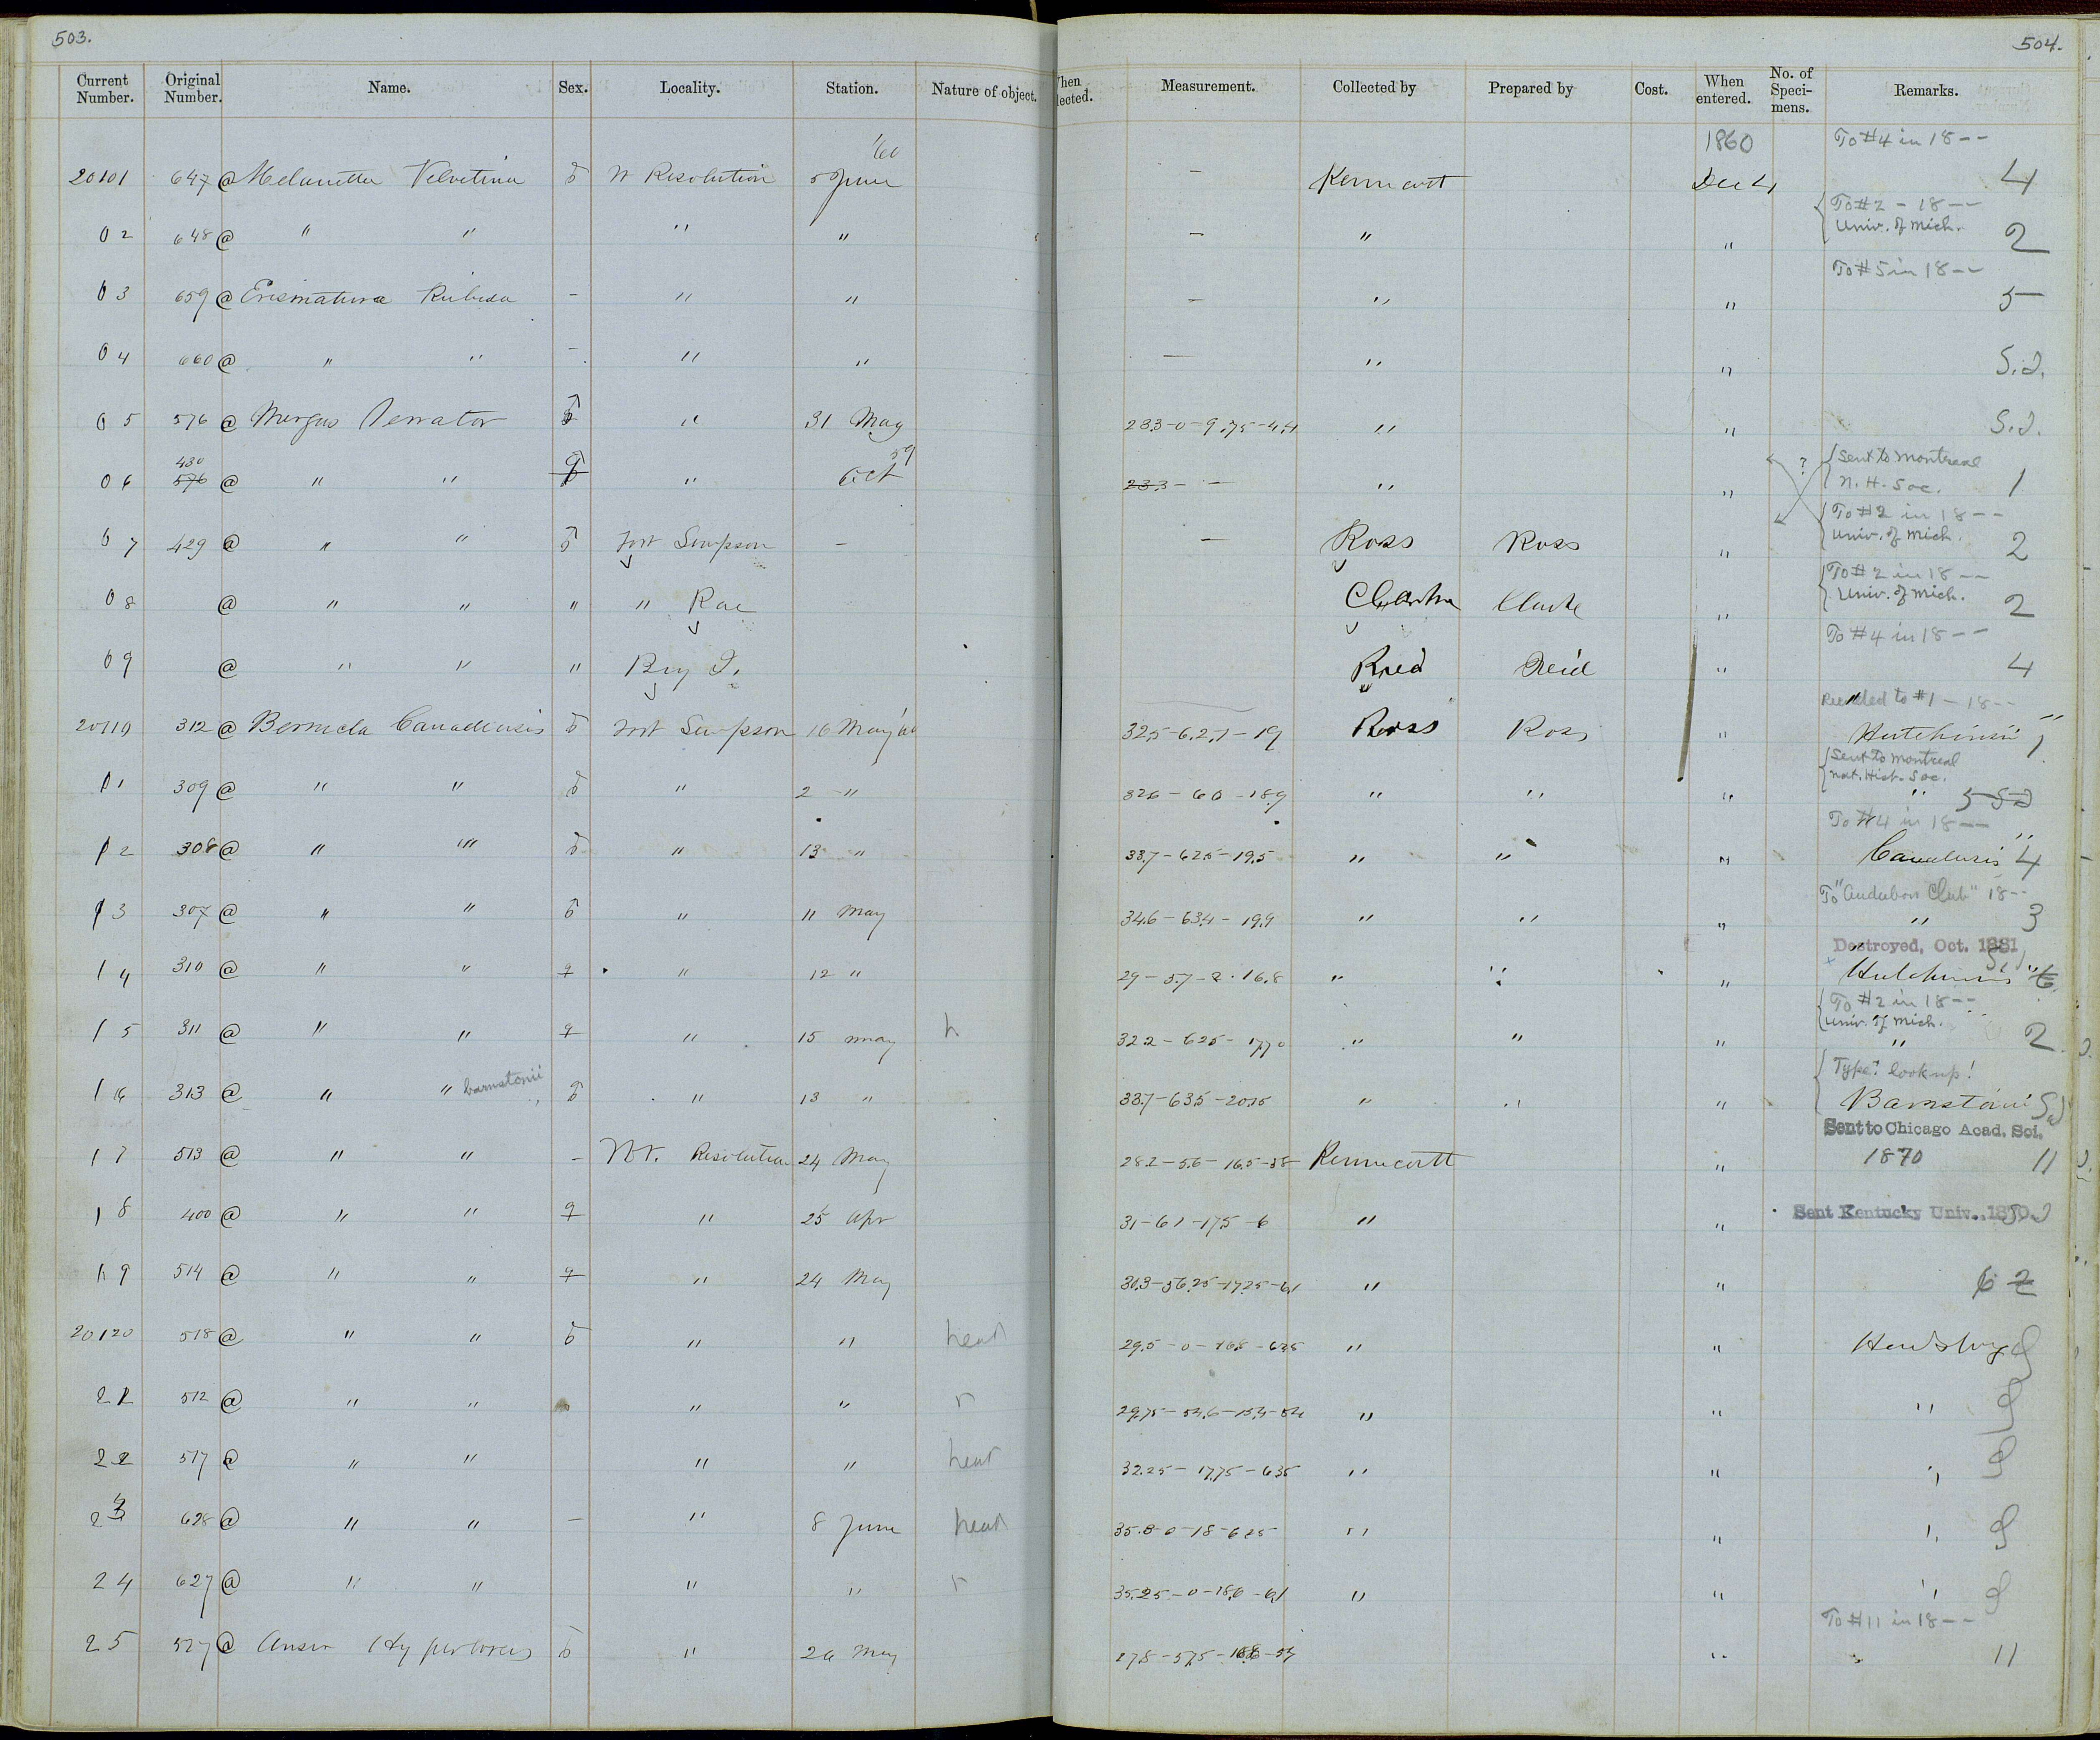 503.
504.
Current Number. Original Number. Name. Sex. Locality. Station. Nature of object. When Measurement. Collected by Prepared by Cost. When entered. No. of Speci-mens. Remarks.
'60 1860 To #4 in 18--
20101 647 @ Melanetta Velvetina ♂ Ft Resolution 5 June — Kennicott Dec 4 4
To #2 - 18--
02 648 @ " " " " — " " Univ. of Mich. 2
To #5 in 18--
03 659 @ Erismatura Rubida - " " — " " 5
04 660 @ " " - " " — " " S.I.
05 576 @ Mergus Serrator ♂ " 31 May 23.3-0-9.75-4.4 " " S.I.
430 59 Sent to Montreal
06 576 @ " " ♀ " Oct 23.3- - " " ? N.H. Soc. 1
To #2 in 18--
07 429 @ " " ♂ Fort Simpson - — Ross Ross " Univ. of Mich. 2
To #2 in 18--
08 @ " " " " Rae Clarke " Univ. of Mich. 2
To #4 in 18--
09 @ " " " Big I. Reid Reid " 4
Recorded to #1 - 18--
20110 312 @ Bernicla Canadensis ♂ Fort Simpson 16 May '60 32.5-6.2.1-19 Ross Ross " Hutchinsii 1
Sent to Montreal
Nat. Hist. Soc.
11 309 @ " " ♂ " 2 " 32.6-60-18.9 " " " "
To #4 in 18--
12 308 @ " " ♂ " 13 " 33.7-62.5-19.5 " " " Canadensis 4
To "Audubon Club" 18--
13 307 @ " " ♂ " 11 May 34.6-63.4-19.9 " " " " 3
Destroyed, Oct. 1881
14 310 @ " " ♀ " 12 " 29-57-2.16.8 " " " Hutchinsii 6
To #2 in 18--
Univ. of Mich.
15 311 @ " " ♀ " 15 May h 32.2-62.5-17.70 " " " " 2
Type? look up!
16 313 @ " " barnstonii ♂ " 13 " 33.7-63.5-20.5 " " " Barnstonii
Sent to Chicago Acad. Sci.
17 513 @ " " - Ft. Resolution 24 May 28.2-56-16.5-58 Kennicott " 1870 11
18 400 @ " " ♀ " 25 Apr 31-61-17.5-6 " " Sent Kentucky Univ., 1870
19 514 @ " " ♀ " 24 May 30.3-56.25-17.25-6.1 " " 6 2
20120 518 @ " " ♂ " " head 29.5-0-16.8-6.35 " "
21 512 @ " " " " " " "
22 517 @ " " " " head 32.25-17.75-6.35 " " "
23 628 @ " " - " 8 June head 35.8-0-18-6.25 " " "
24 627 @ " " " " 35.25-0-18.6-6.1 " " "
To #11 in 18--
25 527 @ Anser Hyperboreus ♂ " 26 May 27.8-57.5- " 11